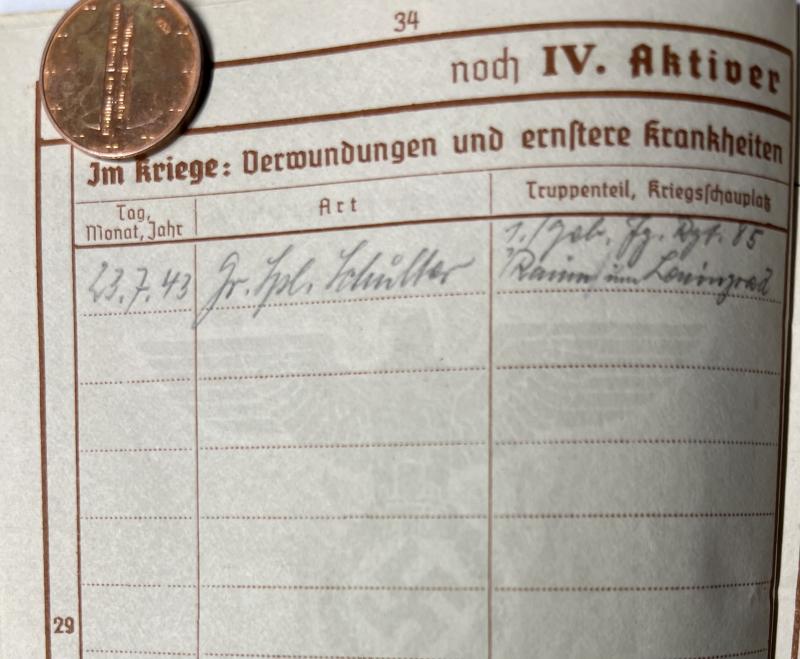 34
noch IV. Aktiver
Im Kriege: Verwundungen und ernstere Krankheiten
Tag,
Monat, Jahr
Art
Truppenteil, Kriegsschauplatz
23.7.43
Gr. Spl. Schulter
1./Geb. Jg. Rgt. 85
Raum um Leningrad
29